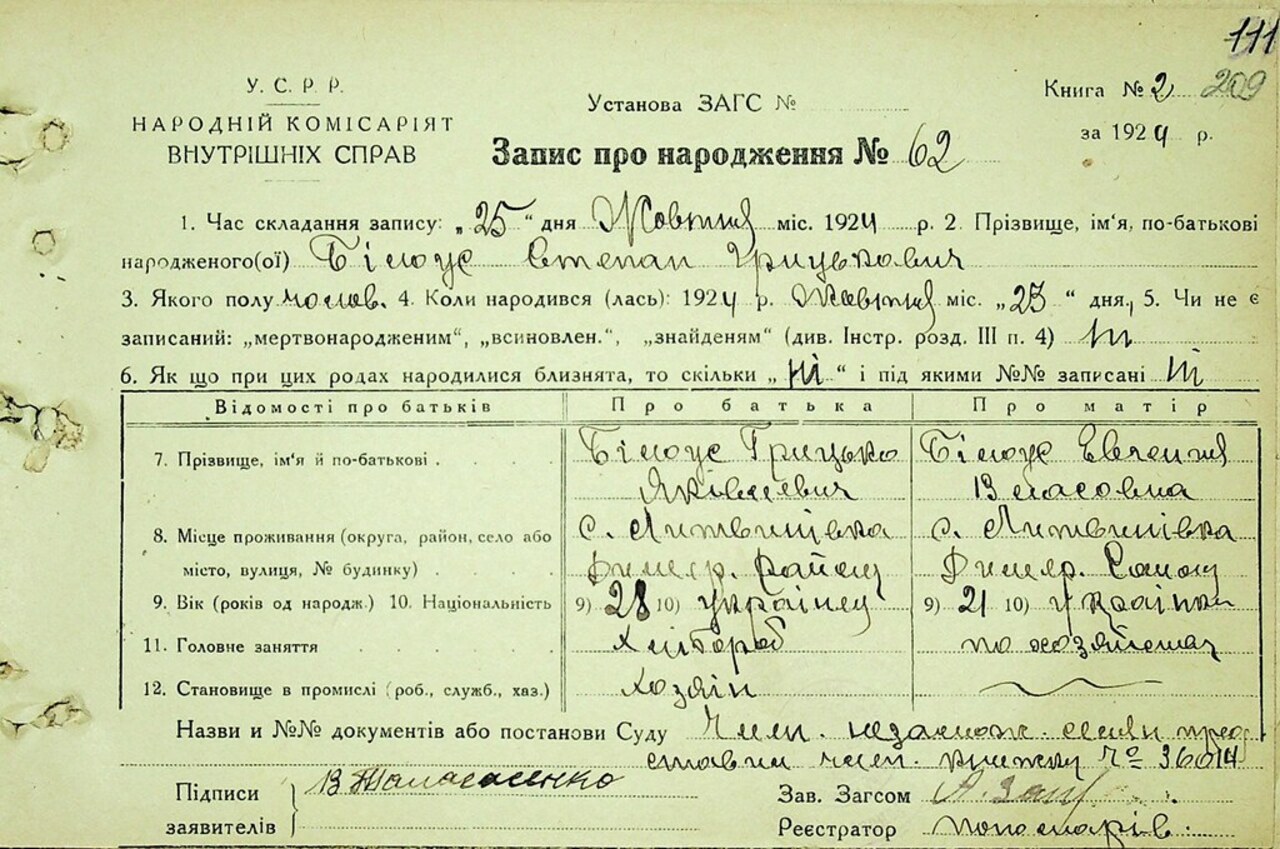 111
У. С. Р. Р. Установа ЗАГС № Книга № 2 209
НАРОДНІЙ КОМІСАРІЯТ за 1924 р.
ВНУТРІШНІХ СПРАВ Запис про народження № 62
1. Час складання запису: „25“ дня Жовтня міс. 1924 р. 2. Прізвище, ім'я, по-батькові
народженого(ої) Білоус Степан Грицькович
3. Якого полу чолов. 4. Коли народився (лась): 1924 р. Жовтня міс. „23“ дня, 5. Чи не є
записаний: „мертвонародженим“, „всиновлен.“, „знайденям“ (див. Інстр. розд. III п. 4) ні
6. Як що при цих родах народилися близнята, то скільки „ні“ і під якими №№ записані ні
Відомості про батьків Про батька Про матір
7. Прізвище, ім'я й по-батькові Білоус Грицько Білоус Евгения
Власовна
8. Місце проживання (округа, район, село або с. Литвинівка с. Литвинівка
місто, вулиця, № будинку) Димер. району Димер. району
9. Вік (років од народж.) 10. Національність 9) 28 10) українец 9) 21 10) українка
11. Головне заняття Хлібороб по хозяйству
12. Становище в промислі (роб., служб., хаз.) хозяін
Назви и №№ документів або постанови Суду Член. незамож. селян пред
ставил член. книжку № 36014
Підписи
заявителів
Зав. Загсом
Реєстратор Пономарів